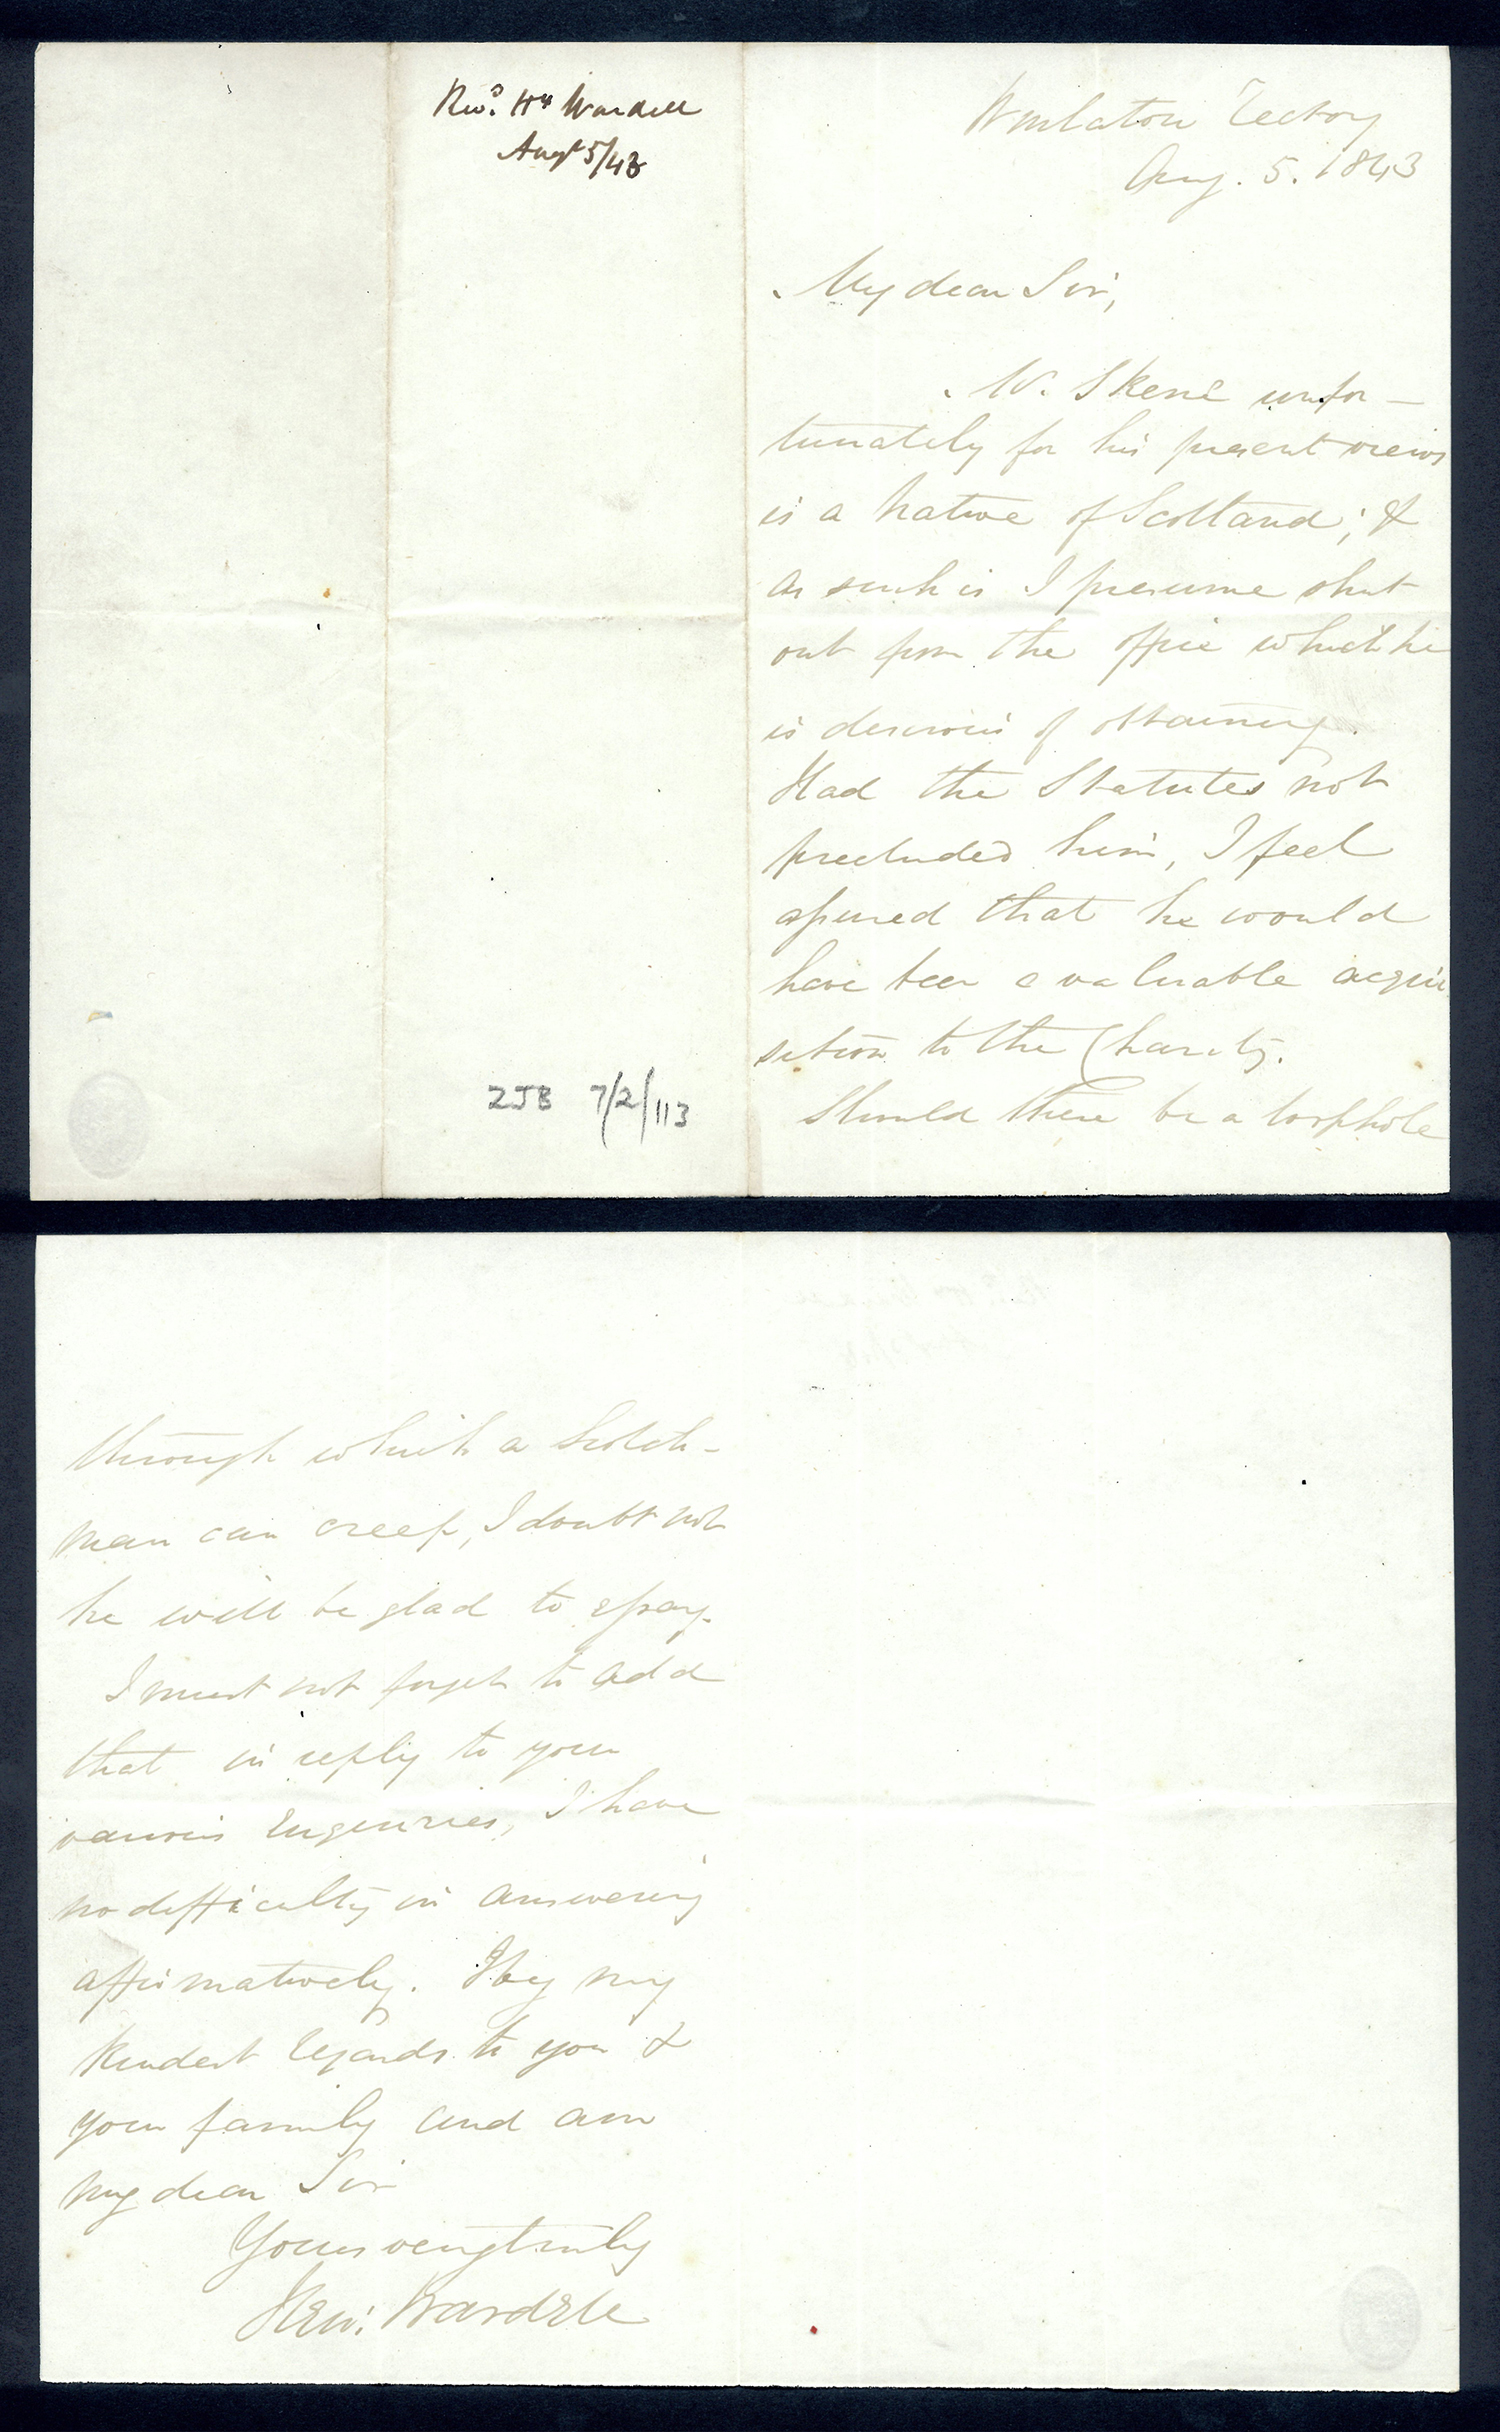 Revd. Hy Wardell
Augt 5/43
2JB 7/2/113
Winlaton Rectory
Aug. 5. 1843
My dear Sir,
Mr. Skene unfor-
tunately for his present views
is a native of Scotland; &
as such is I presume shut
out from the office which he
is desirous of obtaining.
Had the Statutes not
precluded him, I feel
assured that he would
have been a valuable acqui
sition to the Charity.
Should there be a loophole
through which a Scotch-
man can creep, I doubt not
he will be glad to essay.
I must not forget to add
that in reply to your
various Enquiries, I have
no difficulty in answering
affirmatively. I beg my
kindest regards to you &
your family and am
my dear Sir
Yours very truly
Hen: Wardell